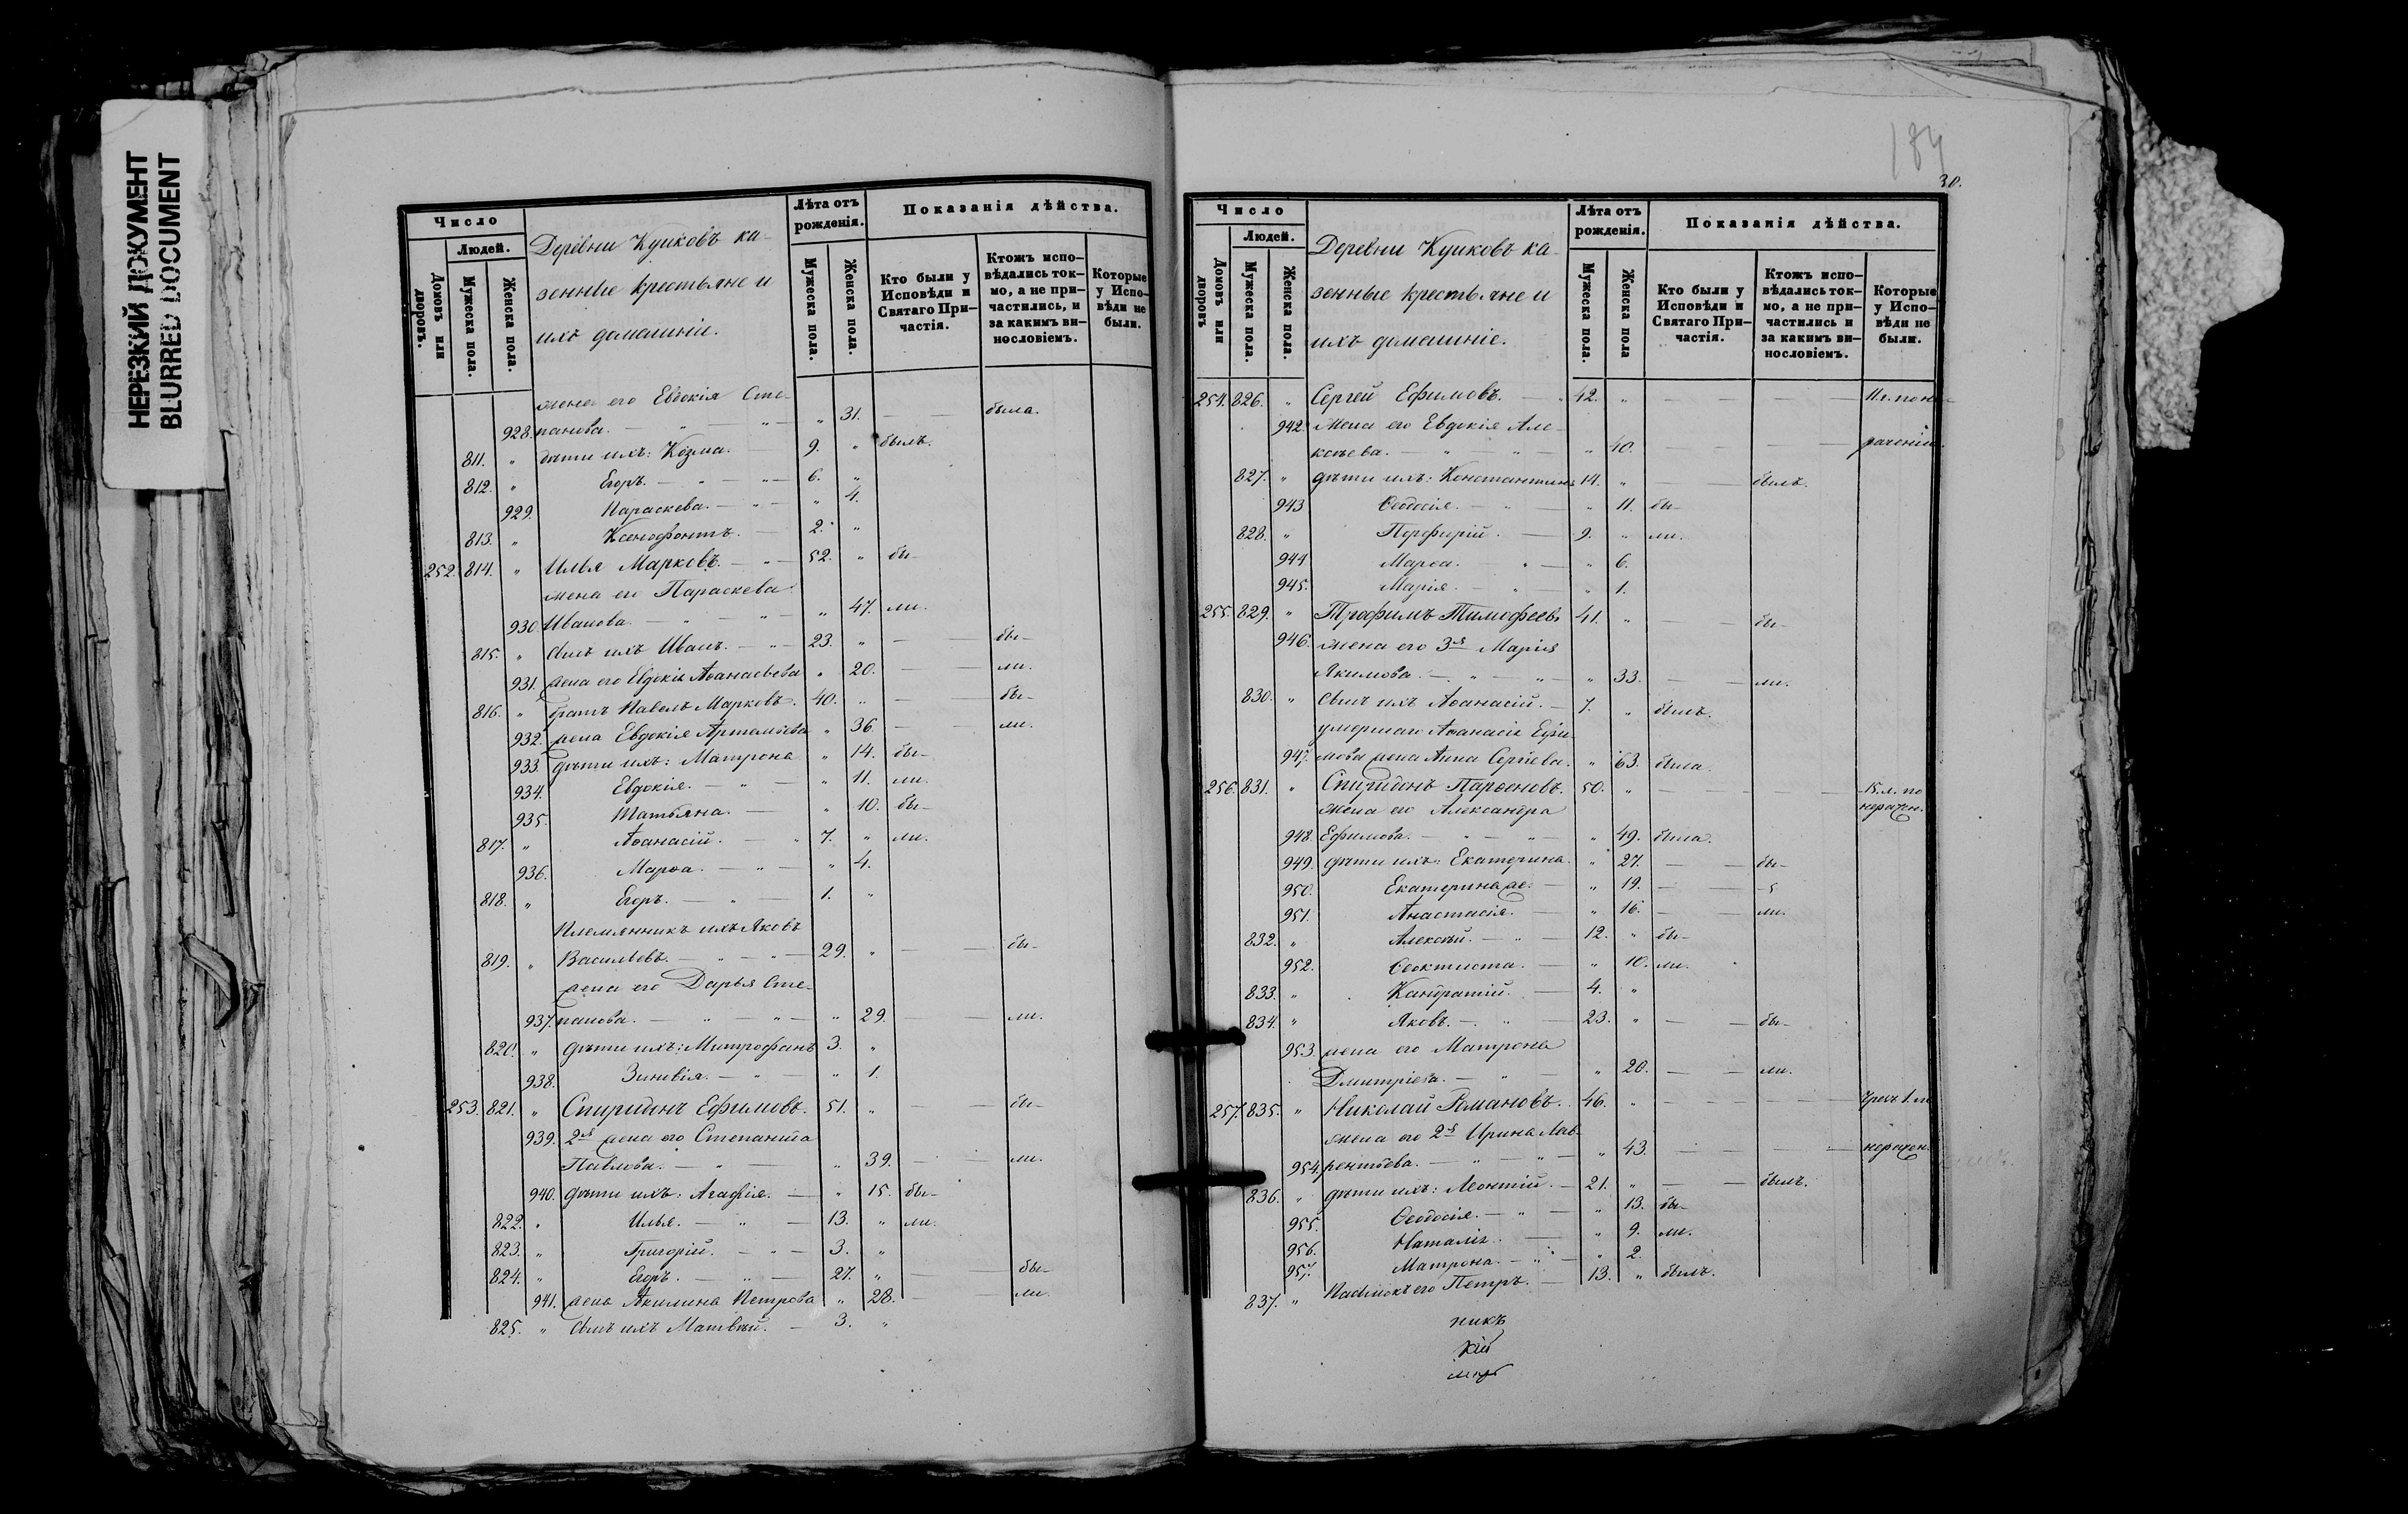 НЕРЕЗКИЙ ДОКУМЕНТ
BLURRED DOCUMENT
Число
Людей.
Домовъ или дворовъ.
Мужеска пола.
Женска пола.
Деревни Кушковъ ка-
зенные крестьяне и
ихъ домашніе.
Лѣта отъ рожденія.
Мужеска пола.
Женска пола.
Показанія дѣйства.
Кто были у Исповѣди и Святаго При-частія.
Ктожъ испо-вѣдались ток-мо, а не при-частились, и за какимъ ви-нословіемъ.
Которые у Испо-вѣди не были.
жена его Евдокія Сте-
928. панова. — " — " — " 31. — — была.
811. " дѣти ихъ: Козма. — 9. " былъ.
812. " Егоръ. — " — " — 6. "
929. Параскева. — " — " 4.
813. " Ксенофонтъ. — 2. "
252. 814. " Илья Марковъ. — " — 52. " бы-
жена его Параскева
930. Иванова — " — " — " 47. ли.
815. " сынъ ихъ Иванъ. — " — 23. " — — бы-
931. жена его Евдокія Аѳанасьева " 20. — — ли.
816. " братъ Павелъ Марковъ. 40. " — бы-
932. жена Евдокія Артемьева " 36. — ли.
933. дѣти ихъ: Матрона " 14. бы-
934. Евдокія. — " — " 11. ли.
935. Татьяна. — " 10. бы-
817. " Аѳанасій. — " 7. " ли.
936. Марѳа. — " — " 4.
818. " Егоръ. — " — 1. "
Племянникъ ихъ Яковъ
819. " Васильевъ. — " — " — 29. " — — бы-
жена его Дарья Сте-
937. панова. — " — " — " 29. — — ли.
820. " дѣти ихъ: Митрофанъ 3. "
938. Зиновія. — " — " 1.
253. 821. " Спиридонъ Ефимовъ. 51. " — — бы-
939. 2я жена его Степанида
Павлова. — " — " 39. — — ли.
940. дѣти ихъ: Агафія. — " 15. бы-
822. " Илья. — " — 13. " ли.
823. " Григорій. — " — 3. "
824. " Егоръ. — " — 27. " — — бы-
941. жена Акилина Петрова " 28. — ли.
825. " сынъ ихъ Матвѣй. — 3. "
184
30.
Число
Людей.
Домовъ или дворовъ
Мужеска пола.
Женска пола.
Деревни Кушковъ ка-
зенные крестьяне и
ихъ домашніе.
Лѣта отъ рожденія.
Мужеска пола.
Женска пола
Показанія дѣйства.
Кто были у Исповѣди и Святаго При-частія.
Ктожъ испо-вѣдались ток-мо, а не при-частились и за какимъ ви-нословіемъ.
Которые у Испо-вѣди не были.
254. 826. " Сергей Ефимовъ. — " 42. " — — — — 11 л. по не-
942. жена его Евдокія Але-
ксѣева. — " — " — " 40. — — — — раченію.
827. " дѣти ихъ: Константинъ 14. " — — былъ.
943 Ѳеодосія. — " — " 11. бы-
828. " Порфирій. — 9. " ли.
944 Марѳа. — " — " 6.
945. Марія. — " — " 1.
255. 829. " Трофимъ Тимофеевъ 41. " — — бы-
946. жена его 3я Марія
Якимова. — " — " — " 33. — — ли.
830. " сынъ ихъ Аѳанасій. — 7. " былъ.
умершаго Аѳанасія Ефи-
947. мова жена Анна Сергѣева. " 63. была.
256. 831. " Спиридонъ Парѳеновъ. 50. " — — — — 15 л. по
жена его Александра нерачен.
948. Ефимова. — " — " — " 49. была.
949. дѣти ихъ: Екатерина. " 27. — — бы-
950. Екатерина же. — " 19. — —
951. Анастасія. — " 16. — — ли.
832. " Алексѣй. — " — 12. " бы-
952. Ѳеоктиста. — " 10. ли.
833. " Кандратій. — 4. "
834. " Яковъ. — " — 23. " — — бы-
953. жена его Матрона
Дмитріева. — " — " 20. — — ли.
257. 835. " Николай Романовъ. 46. " — — — —
жена его 2я Ирина Лав-
954. рентьева. — " — " — " 43. — — — — нерачен.
836. " дѣти ихъ: Леонтій. — 21. " — — былъ.
955. Ѳеодосія. — " — " 13. бы-
956. Наталія. — " 9. ли.
957. Матрона. — " — " 2.
837. " Пасынокъ его Петръ. — 13. " былъ.
никъ